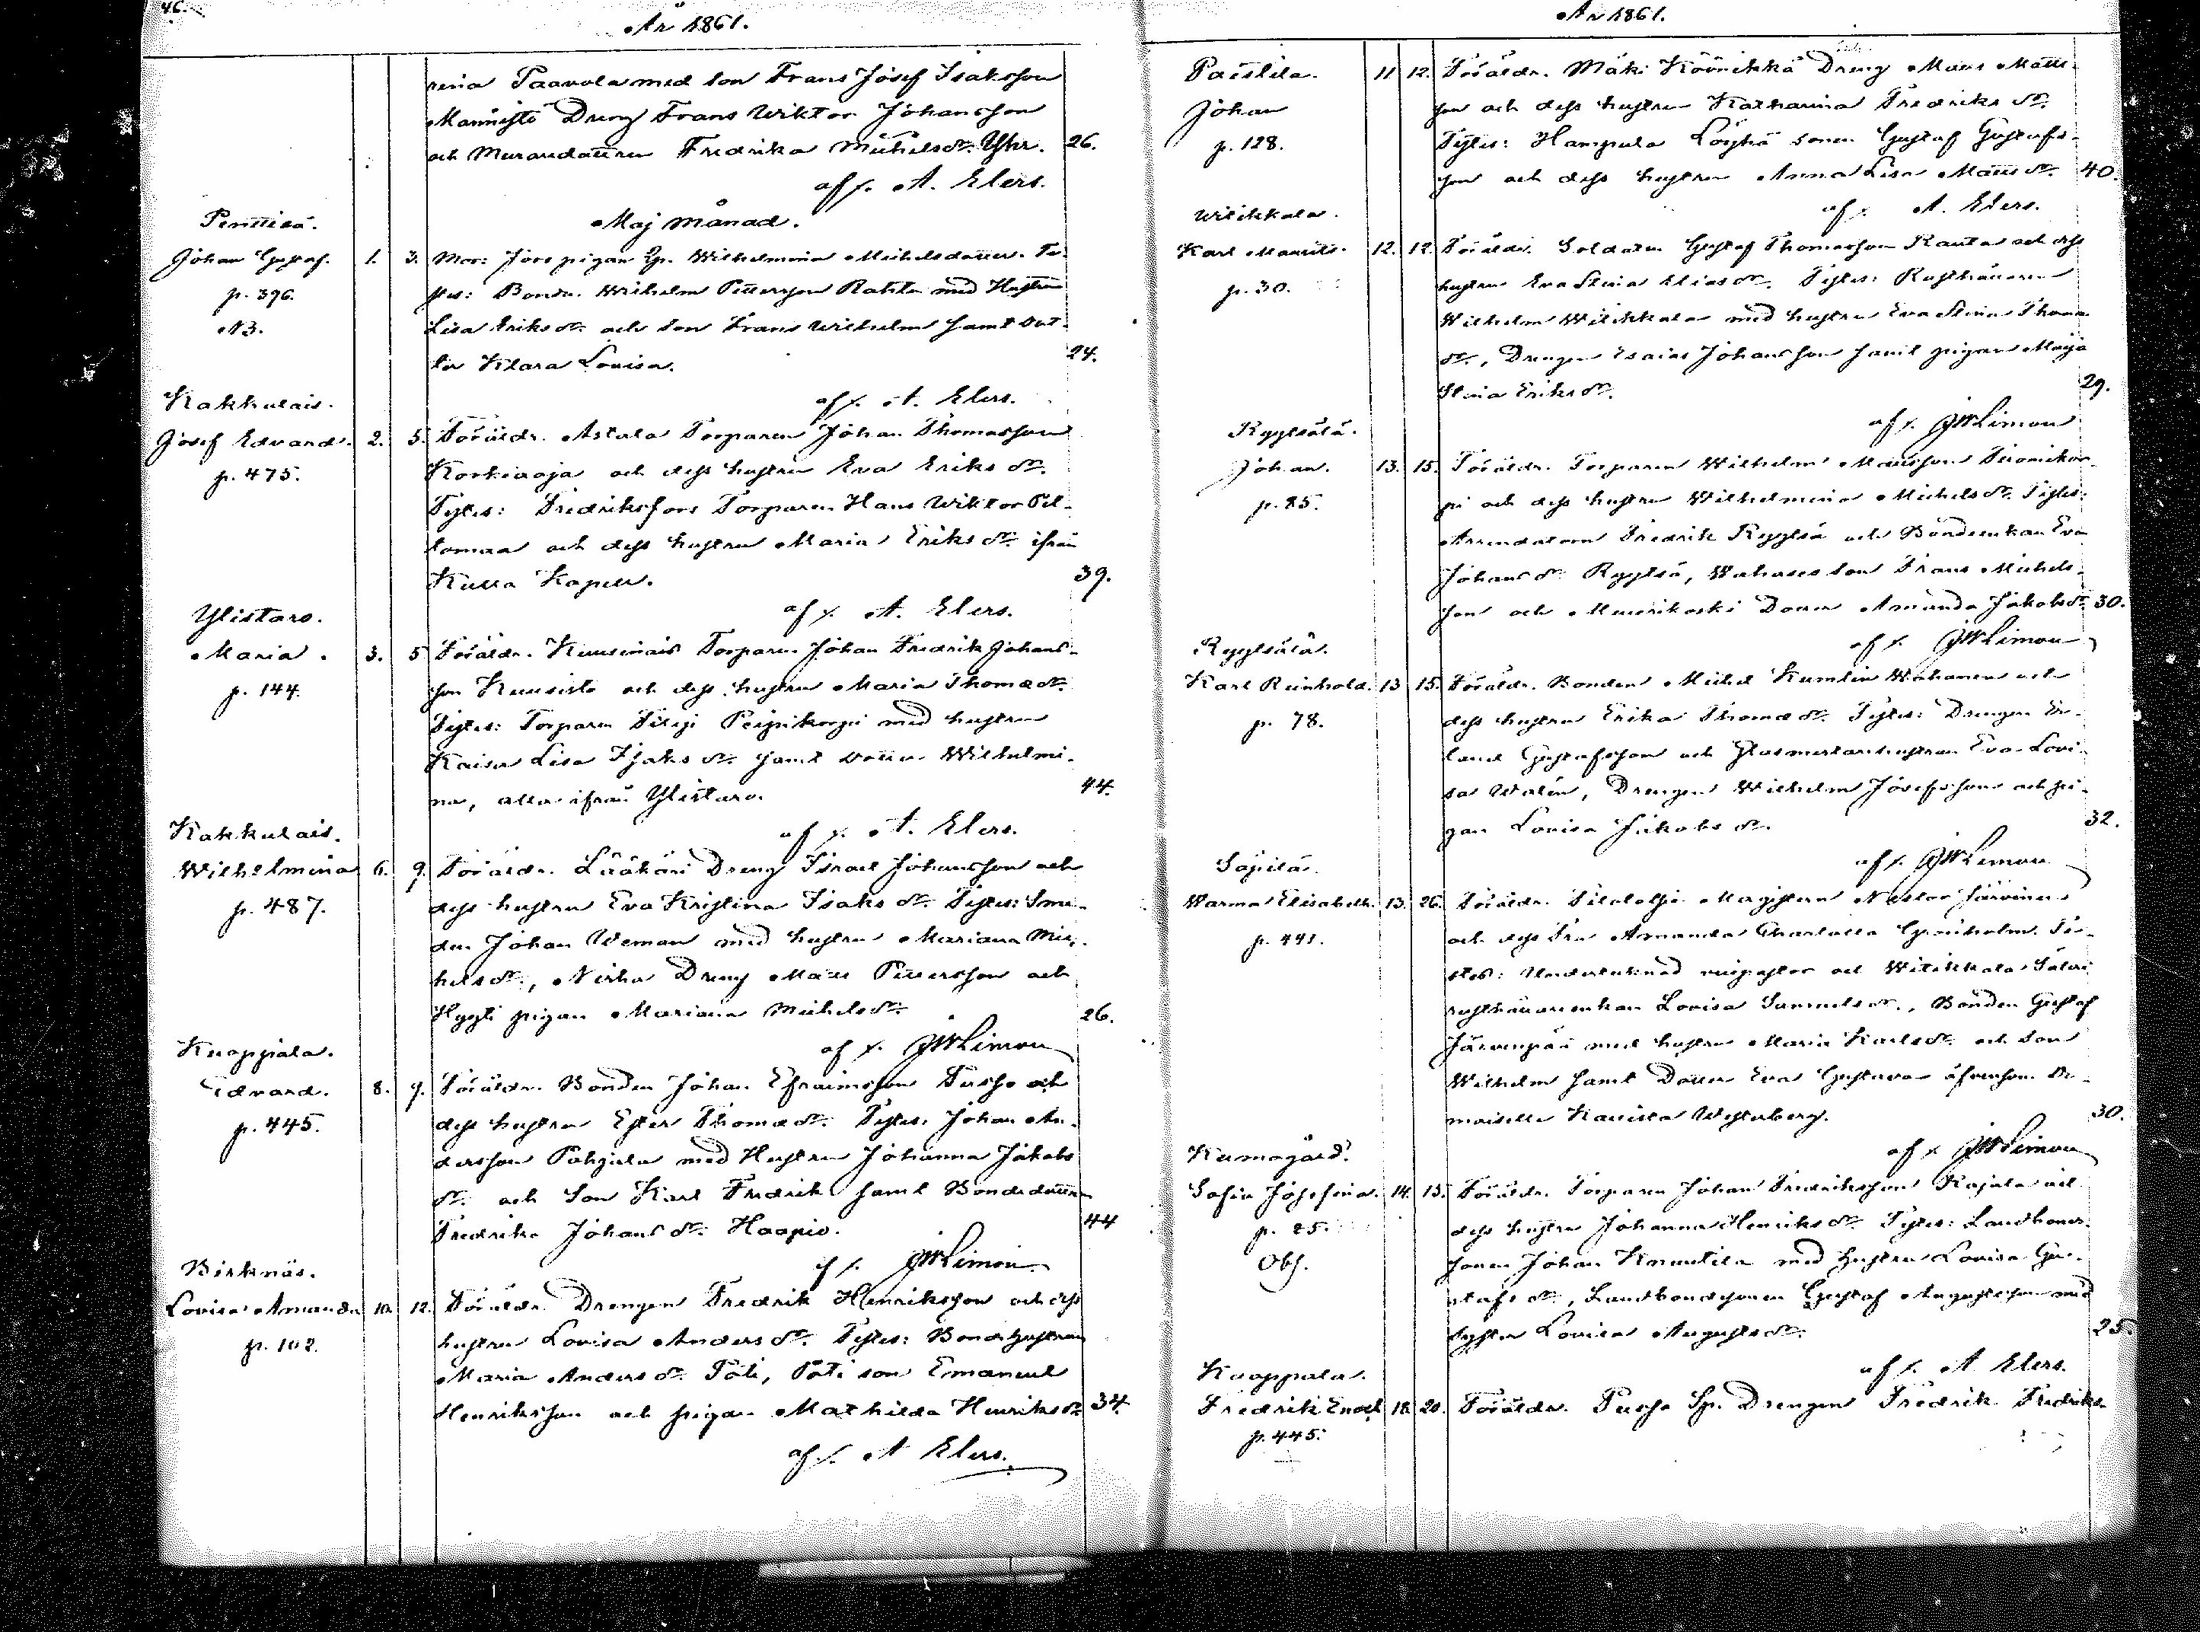 46.
År 1861.
rina Paavola med son Frans Josef Isaksson
Männistö Dreng Frans Wiktor Johansson
och Muraredottren Fredrika Michelsdr. Yhr. 26.
af /. A. Elers.
Maj månad.
Penttilä.
Johan Gustaf. 1. 3. Mor: Järs pigan Sp. Wilhelmina Michelsdotter. Te-
p. 396. stes: Bonden Wilhelm Pettersson Rahla med Hustru
N3. Lisa Eriksdr. och son Frans Wilhelm samt Dot-
ter Klara Lovisa. 24.
af /. A. Elers.
Kakkulais.
Josef Edvard. 2. 5. Föräldr. Astala Torparen Johan Thomasson
p. 475. Korkiaoja och dess hustru Eva Eriks dr.
Testes: Fredriksfors Torparen Hans Wiktor Pel-
tomaa och dess hustru Maria Eriks dr. ifrån
Kulla Kapell. 39.
af /. A. Elers.
Ylistaro.
Maria. 3. 5 Föräldr. Kuusimais Torparen Johan Fredrik Johans-
p. 144. son Kuusisto och dess hustru Maria Thomædr.
Testes: Torparen Filip Peipikorpi med hustru
Kaisa Lisa Isaks dr. samt dotter Wilhelmi-
na, alla ifrån Ylistaro. 44.
af /. A. Elers.
Kakkulais.
Wilhelmina 6. 9. Föräldr. Lääkäri Dreng Israel Johansson och
p. 487. dess hustru Eva Kristina Isaks dr. Testes: Sme-
den Johan Weman med hustru Mariana Mic-
hels dr., Nirha Dreng Matts Pettersson och
Hyyti pigan Mariana Michelsdr. 26.
af /. JWLimon
Kuoppala.
Edvard. 8. 9. Föräldr. Bonden Johan Efraimsson Pusso och
p. 445. dess hustru Ester Thomædr. Testes: Johan An-
dersson Pohjala med Hustru Johanna Jakobs
dr. och Son Karl Fredrik samt Bondedottren
Fredrika Johans dr. Haapio. 44
af /. JWLimon.
Birknäs.
Lovisa Amanda 10. 12. Föräldr. Drengen Fredrik Henriksson och dess
p. 102. hustru Lovisa Anders dr. Testes: Bondehustrun
Maria Anders dr. Töli, Töli son Emanuel
Henriksson och pigan Mathilda Henriksdr. 34.
af /. A Elers.
År 1861.
Paistila. 11 12. Föräldr. Mäki Köönikkä Dreng Matts Matts-
Johan son och dess hustru Katharina Fredriks dr.
p. 128. Testes: Hampula Löyhä sonen Gustaf Gustafs-
son och dess hustru Anna Lisa Matts dr. 40.
af /. A. Elers.
Wilikkala.
Karl Maurits. 12. 12. Föräldr. Soldaten Gustaf Thomasson Rauta och dess
p. 30. hustru Eva Stina Elias dr. Testes: Rusthållaren
Wilhelm Wilikkala med hustru Eva Stina Thomæ
dr., Drengen Esaias Johansson samt pigan Maija
Stina Eriksdr. 29.
af /. JWLimon
Ryytsälä.
Johan. 13. 15. Föräldr. Torparen Wilhelm Mattsson Peronikor-
p. 85. pi och dess hustru Wilhelmina Michels dr. Testes:
Arrendatorn Fredrik Ryytsä och Bondeenkan Eva
Johans dr. Ryytsä, Wahases son Frans Michels-
son och Muurikoski Dotter Amanda Jakobsdr. 30.
af /. JWLimon
Ryytsälä.
Karl Reinhold. 13 15. Föräldr. Bonden Michel Kumlin Wahanen och
p. 78. dess hustru Erika Thomædr. Testes: Drengen Er-
land Gustafsson och Glasmästarehustrun Eva Lovi-
sa Walin, Drengen Wilhelm Josefsson och pi-
gan Lovisa Jakobs dr. 32.
af /. JWLimon
Säpilä.
Warma Elisabeth. 13. 26. Föräldr. Filolofie Magistern Nestor Järvinen
p. 441. och dess Fru Amanda Charlotta Grönholm. Te-
stes: Undertecknad vicepastor och Wilikkala Salvi
rusthållareenkan Lovisa Samuels dr., Bonden Gustaf
Järvenpää med hustru Maria Karlsdr. och Son
Wilhelm samt Dotter Eva Gustava äfvensom De-
moiselle Kamilla Westerberg. 30.
af /. JWLimon
Kumogård.
Sofia Josefina. 14. 15. Föräldr. Torparen Johan Fredriksson Rajala och
p. 25. dess hustru Johanna Henriks dr. Testes: Landbonde-
Obs. sonen Johan Knuutila med hustru Lovisa Gu-
stafs dr., Landbondesonen Gustaf Augustsson med
syster Lovisa Augusts dr. 25.
af /. A Elers.
Kuoppala.
Fredrik Enoch 18. 20. Föräldr. Pusso Sp. Drengen Fredrik Fredriks-
p. 445.